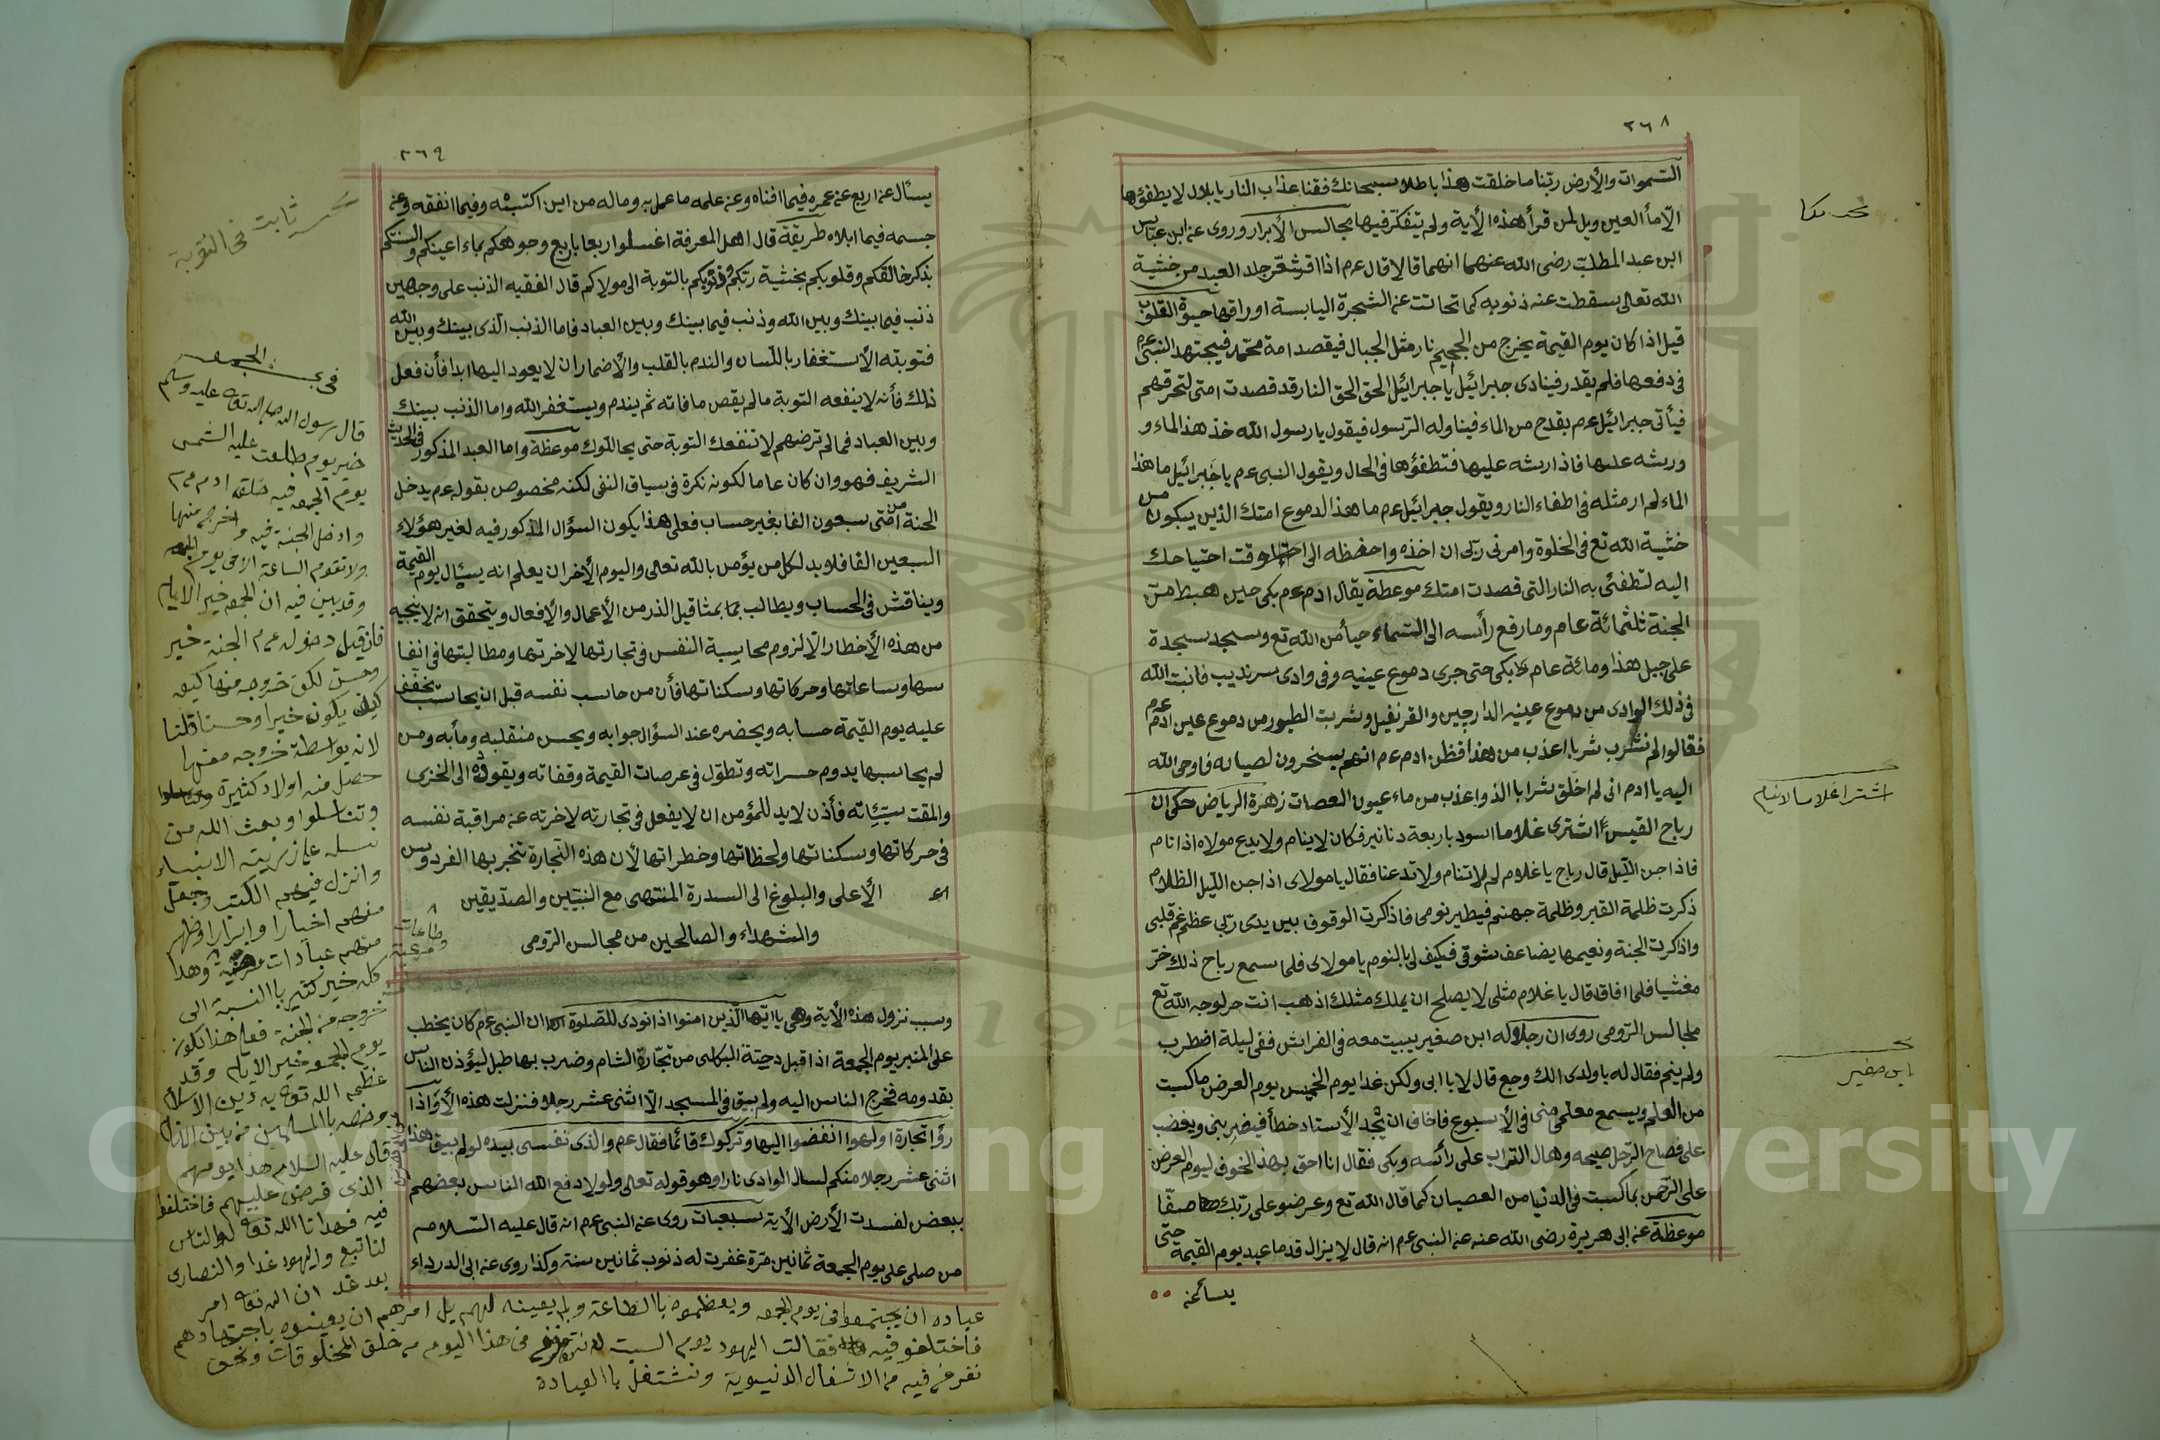 ٢٦٨
السموات والأرض ربنا ما خلقت هذا باطلا سبحانك فقنا عذاب النار يا بلال لا يطفؤها
الا ماء العين ويل لمن قرأ هذه الآية ولم يتفكر فيها مجالس الأبرار وروى عن ابن عباس
ابن عبد المطلب رضى الله عنهما انهما قالا قال عم اذا اقشعر جلد العبد من خشية
الله تعالى سقطت عنه ذنوبه كما تحاتت عن الشجرة اليابسة اوراقها حيوة القلوب
قيل اذا كان يوم القيمة يخرج من الجحيم نار مثل الجبال فيقصد امة محمد فيجتهد النبى عم
فى دفعها فلم يقدر فينادى جبرائيل يا جبرائيل الحق الحق النار قد قصدت امتى لتحرقهم
فيأتى جبرائيل عم بقدح من الماء فيناوله الرسول فيقول يا رسول الله خذ هذ الماء و
ورشه عليها فاذا رشه عليها فتطفؤها فى الحال ويقول النبى عم يا جبرائيل ما هذا
الماء لم ار مثله فى اطفاء النار ويقول جبرائيل عم ما هذ الدموع امتك الذين يبكون من
خشية الله تع فى الخلوة وامرنى ربى ان اخذه واحفظه الى وقت احتياجك
اليه لتطفئ به النار التى قصدت امتك موعظة يقال ادم عم بكى حين هبط من
الجنة ثلثمائة عام وما رفع رأسه الى السماء حيأ من الله تع وسجد سجدة
على جبل هذا ومائة عام بكى حتى جرى دموع عينيه وفى وادى سرنديب فانبت الله
فى ذلك الوادى من دموع عينيه الدارجين والقرنفيل وشربت الطيور من دموع عين ادم عم
فقالوا لم نشرب شربا اعذب من هذا فظن ادم عم انهم يسخرون لعصيانه فاوحى الله
اليه يا ادم انى لم اخلق شرابا الذ واعذب من ماء عيون العصات زهرة الرياض حكى ان
رباح القيسى اشترى غلاما اسود باربعة دنانير فكان لا ينام ولا يدع مولاه اذا نام
فاذا جن الليل قال رباح يا غلام لم لا تنام ولا تدعنا فقال يا مولاى اذا جن الليل الظلام
ذكرت ظلمة القبر وظلمة جهنم فيطير نومى فاذا ذكرت الوقوف بين يدى ربى عظم غم قلبى
واذا ذكرت الجنة ونعيمها يضاعف شوقى فكيف لى بالنوم يا مولاى فلما سمع رباح ذلك خر
مغشيا فلما افاق قال يا غلام مثلى لا يصلح ان يملك مثلك اذهب انت حر لوجه الله تع
مجالس الرومى روى ان رجلا له ابن صغير يبيت معه فى الفراش ففى ليلة اضطرب
ولم ينم فقال له يا ولدى الك وجع قال لا يا ابى ولكن غدا يوم الخميس يوم العرض ما كسبت
من العلم ويسمع معلمى منى فى الأسبوع فاخاف ان يجد الأستاد خطأ فيضربنى ويغضب
على فصاح الرجل صيحه وهال التراب على رأسه وبكى فقال انا احق بهذ الخوف ليوم العرض
على الرحمن بما كسبت فى الدنيا من العصيان كما قال الله تع وعرضوا على ربك صفا
موعظة عن ابى هريرة رضى الله عنه عن النبى عم انه قال لا يزال قدما عبد يوم القيمة حتى
يسأل عن
اشترا غلاما لا ينام
ابن صغير
٢٦٩
يسأل عن اربع عن عمره فيما افناه وعن علمه ما عمل به وماله من اين اكتسبه وفيما انفقه وعن
جسمه فيما ابلاه طريقة قال اهل المعرفة اغسلوا اربعا باربع وجوهكم بماء اعينكم والسنتكم
بذكر خالقكم وقلوبكم بخشية ربكم وذنوبكم بالتوبة الى مولاكم قال الفقيه الذنب على وجهين
ذنب فيما بينك وبين الله وذنب فيما بينك وبين العباد فاما الذنب الذى بينك وبين الله
فتوبته الأستغفار باللسان والندم بالقلب والأضمار ان لا يعود اليها ابدا فأن فعل
ذلك فأنه لا ينفعه التوبة ما لم يقض ما فاته ثم يندم ويستغفر الله واما الذنب بينك
وبين العباد فما لم ترضهم لا تنفعك التوبة حتى يحاللوك موعظة واما العبد المذكور فى الحديث
الشريف فهو وان كان عاما لكونه نكرة فى سياق النفى لكنه مخصوص بقوله عم يدخل
الجنة من امتى سبعون الفا بغير حساب فعلى هذا يكون السؤال المذكور فيه لغير هؤلاء
السبعين الفا فلا بد لكل من يؤمن بالله تعالى واليوم الأخر ان يعلم انه يسئال يوم القيمة
ويناقش فى الحساب ويطالب بما بمثاقيل الذر من الأعمال والأفعال ويتحقق انه لا ينجيه
من هذه الأخطار الا لزوم محاسبة النفس فى تجارتها لاخرتها ومطالبتها فى انفا
سها وساعاتها وحركاتها وسكناتها فأن من حاسب نفسه قبل ان يحاسب يخفف
عليه يوم القيمة حسابه ويحضره عند السؤال جوابه ويحسن منقلبه ومأبه ومن
لم يحاسبها يدوم حسراته وتطول فى عرصات القيمة وقفاته ويقوده الى الخزى
والمقت سيئاته فأذن لا بد للمؤمن ان لا يغفل فى تجارته لاخرته عن مراقبة نفسه
فى حركاتها وسكناتها ولحظاتها وخطراتها لأن هذه التجارة تنجر بها الفردوس
الأعلى والبلوغ الى السدرة المنتهى مع النبيين والصديقين
والشهداء والصالحين من مجالس الرومى
وسبب نزول هذه الأية وهى يا ايها الذين امنوا اذا نودى للصلوة ان النبى عم كان يخطب
على المنبر يوم الجمعة اذا قبل دحية الكلبى من تجارة الشام وضرب بها طبل ليؤذن الناس
بقدومه فخرج الناس اليه ولم يبق فى المسجد الا اثنى عشر رجلا فنزلت هذه الأية واذا
رؤا تجارة او لهوا انفضوا اليها وتركوك قائما فقال عم والذى نفسى بيده لو لم يبق هذا
اثنى عشر رجلا منكم لسال الوادى نارا وهو قوله تعالى ولولا دفع الله الناس بعضهم
ببعض لفسدت الأرض الأية سبعيات روى عن النبى عم انه قال عليه السلام
من صلى على يوم الجمعة ثمانين مرة غفرت له ذنوب ثمانين سنة وكذا روى عن ابى الدرداء
ثابت فى التوبة
فى الجمعه
قال رسول الله صلى الله تعالى عليه وسلم
خير يوم طلعت عليه الشمس
يوم الجمعه فيه خلق ادم عم
وادخل الجنة فيه واخرج منها
ولا تقوم الساعة الا فى يوم الجمعه
وقد بين فيه ان الجمعه خير الايام
فان قيل دخوله عم الجنة خير
وحسن لكن خروجه منها كيف
يكون خيرا وحسنا قلنا
لانه بواسطة خروجه منها
حصل منه اولاد كثيرة
وتناسلوا وبعث الله من
نسله على ذريته الانبياء
وانزل فيهم الكتب وجعل
منهم اخيارا وابرارا وظهر
منهم عبادات وطاعات مرضية وهذا
كله خير كثير باالنسبة الى
خروجه من الجنة فعلى هذا يكون
يوم الجمعة خير الايام وقد
عظم الله تعالى به دين الاسلام
وخصه باالمسلمين من بين الانام
قال عليه السلام هذا يومهم
الذى فرض عليهم فاختلفوا
فيه فهدانا الله تعالى له والناس
لنا تبع واليهود غدا والنصارى
بعد غد ان الله تعالى امر
عباده ان يجتمعوا فى يوم الجمعه ويعظموه باالطاعة ولم يعينه لهم بل امرهم ان يعينوه باجتهادهم
فاختلفو فيه فقالت اليهود يوم السبت فى هذا اليوم من خلق المخلوقات ونحن
نفرغ فيه من الاشغال الدنيوية ونشتغل باالعبادة
Copyright © King Saud University
195